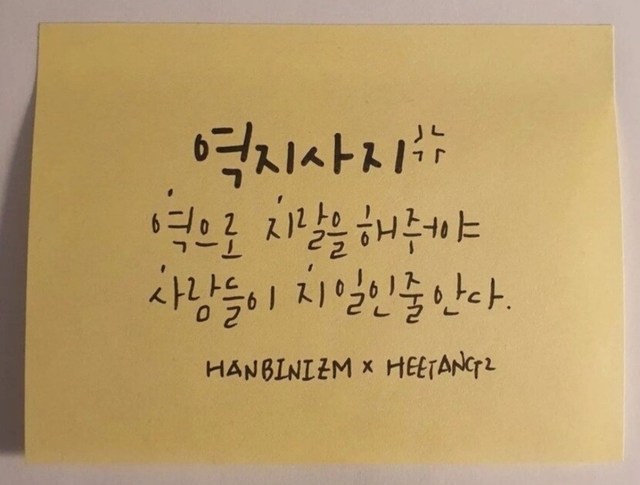 역지사지
역으로 지랄을 해주어야
사람들이 지일인줄 안다.
HANBINIZM x HEETANG2